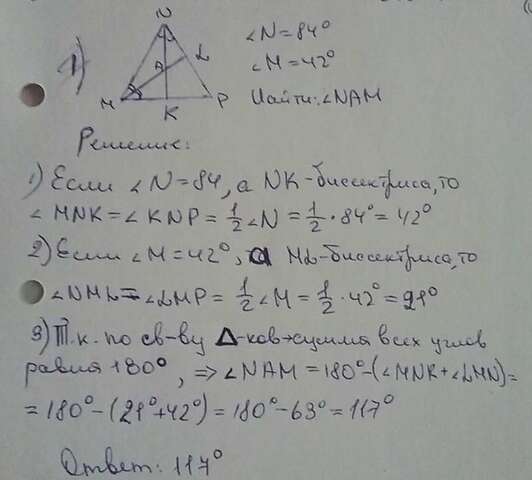 N
1)
A
L
M
K
P
∠N=84°
∠M=42°
Найти: ∠NAM
Решение:
1) Если ∠N=84, а NK-биссектриса, то
∠MNK=∠KNP=1/2∠N=1/2·84°=42°
2) Если ∠M=42°, а ML-биссектриса, то
∠NML=∠LMP=1/2∠M=1/2·42°=21°
3) Т.к. по св-ву Δ-ков→сумма всех углов
равна 180°, ⇒ ∠NAM=180°-(∠MNK+∠LMN)=
=180°-(21°+42°)=180°-63°=117°
Ответ: 117°